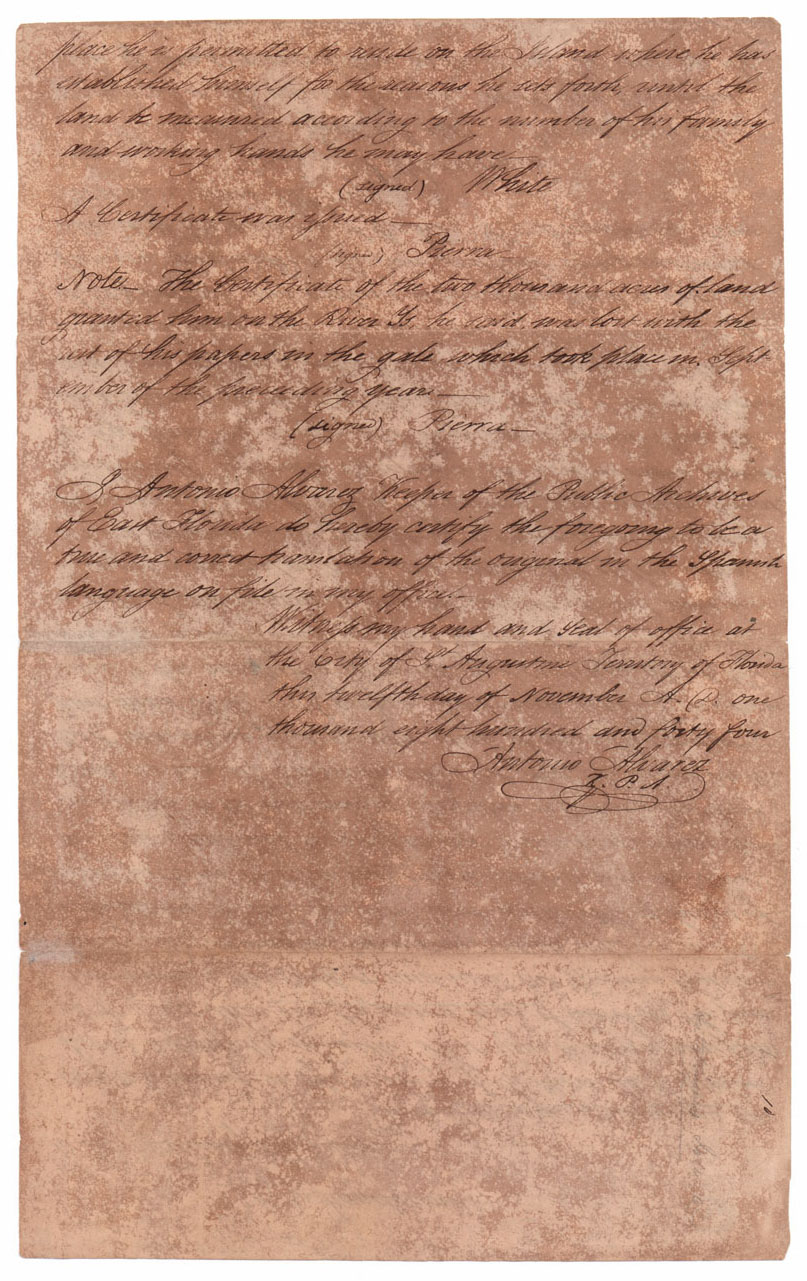 place he is permitted to reside on the Island where he has
established himself for the reasons he sets forth, until the
land be measured according to the number of his family
and working hands he may have—
(signed) White
A Certificate was issued—
(signed) Pierra
Note— The Certificate of the two thousand acres of land
granted him on the River he said was lost with the
rest of his papers in the gale which took place in Sept
ember of the preceeding year—
(signed) Pierra—
I Antonio Alvarez Keeper of the Public Archives
of East Florida do hereby certify the foregoing to be a
true and correct translation of the original in the Spanish
language on file in my office—
Witness my hand and seal of office at
the City of St Augustine Territory of Florida
this twelfth day of November A. D. one
thousand eight hundred and forty four
Antonio Alvarez
K. P. A